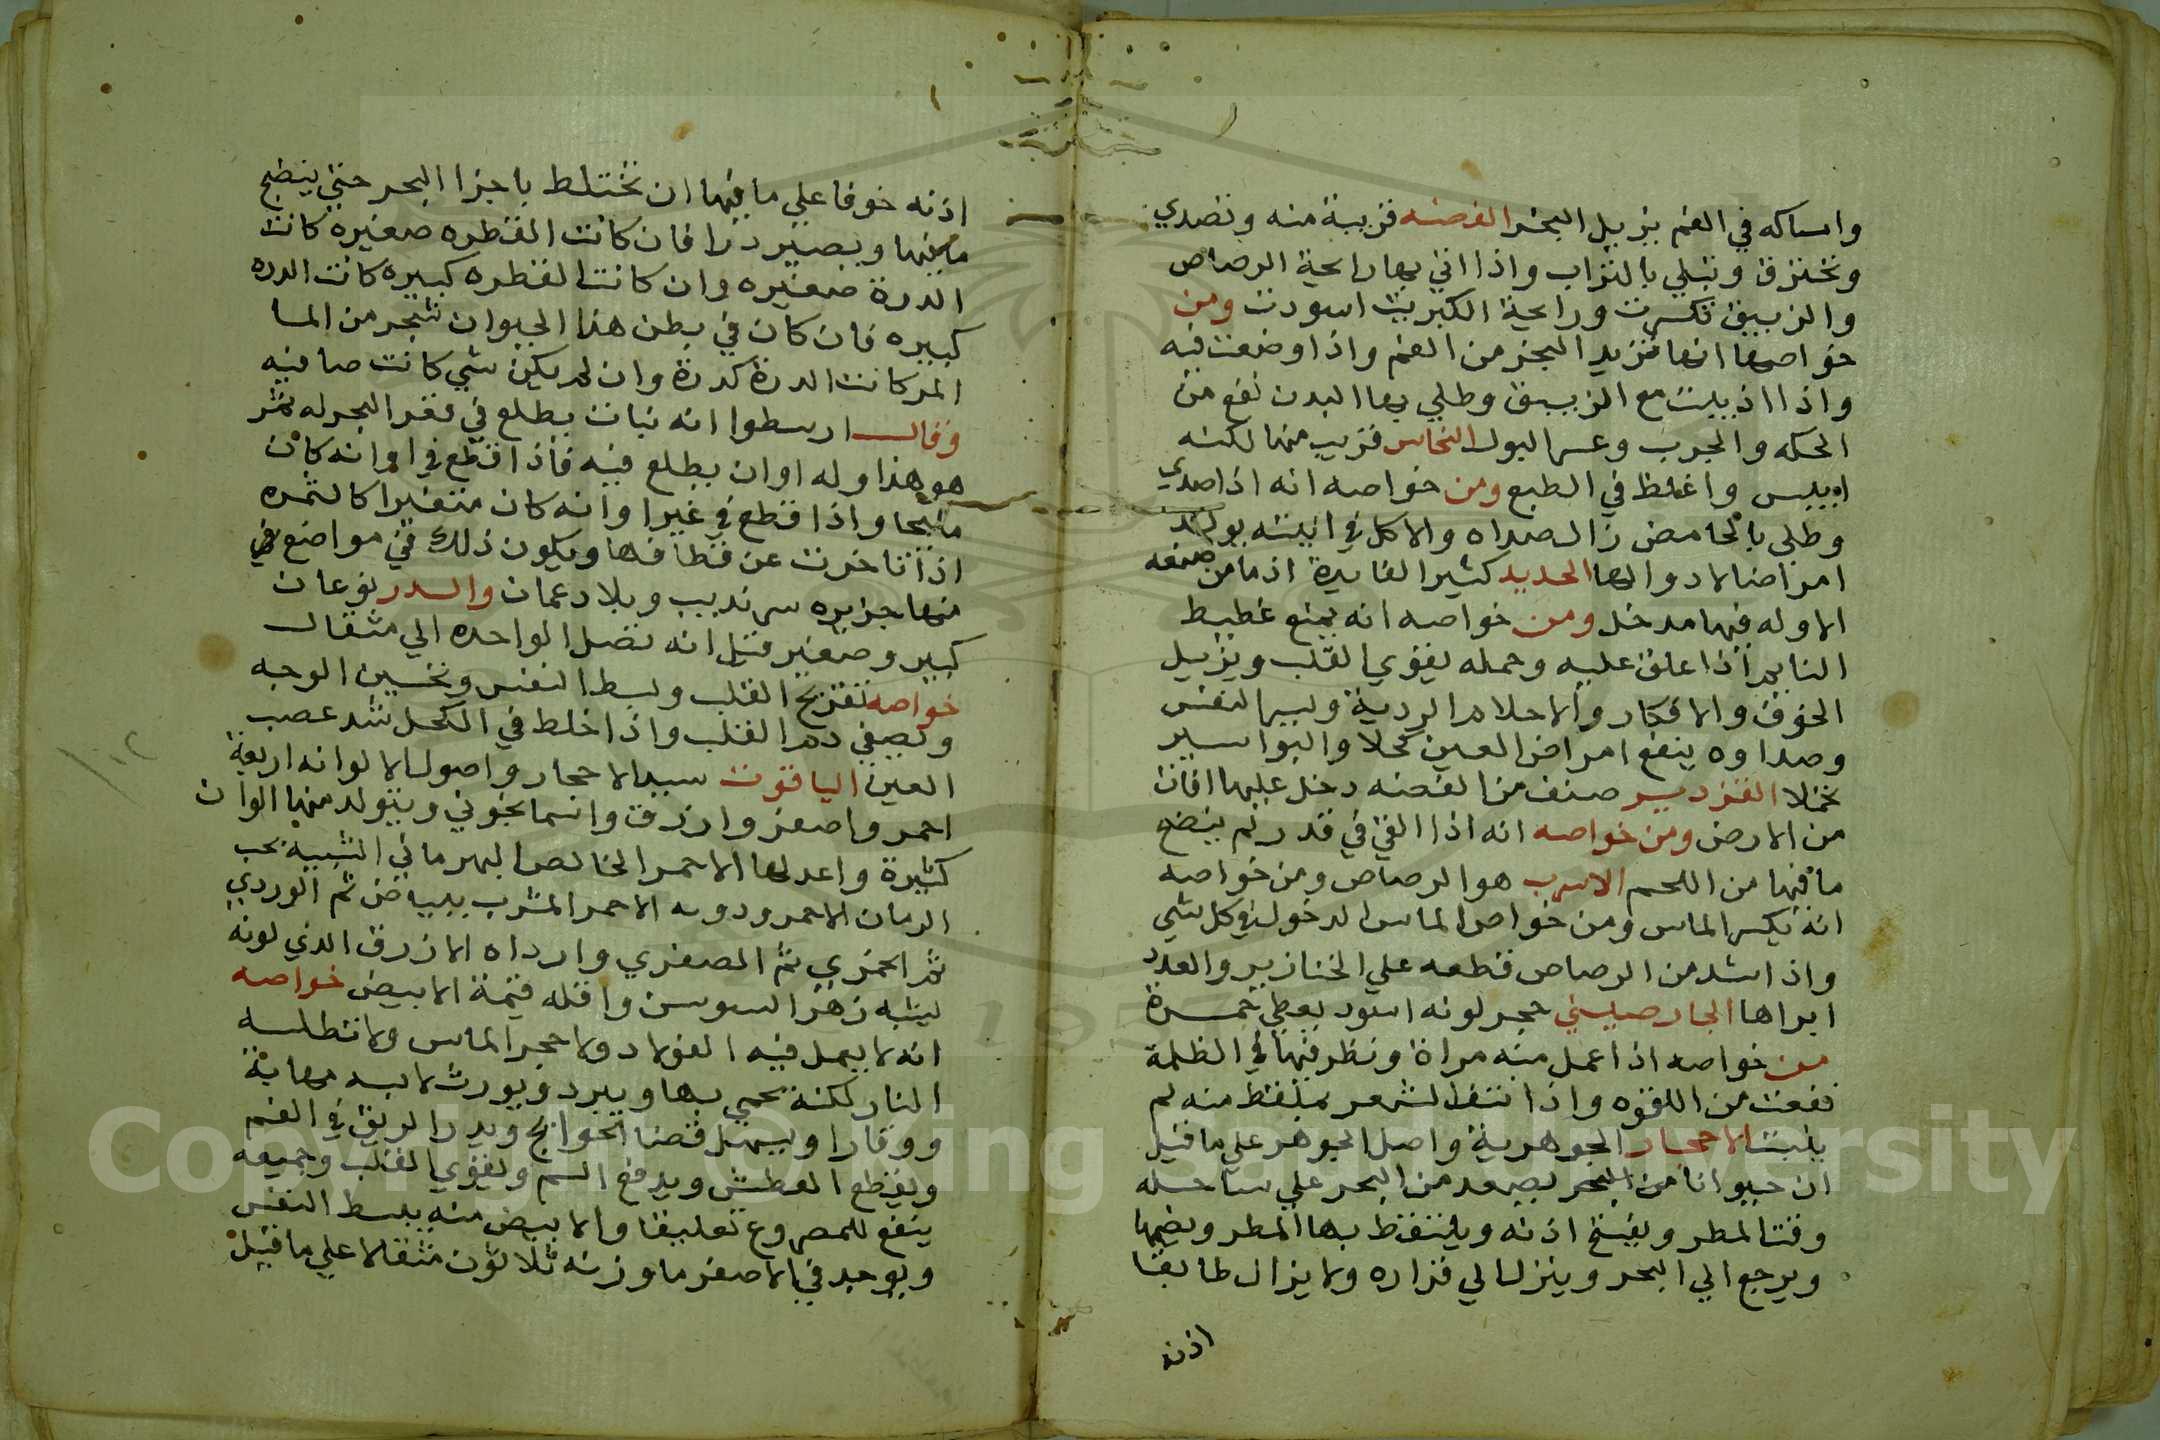 وامساكه في الفم يزيل البخر الفضه قريبة منه وتصدي
وتحترق وتبلي بالتراب واذا اتي بها رايحة الرصاص
والزيبق تكسرت ورايحة الكبريت اسودت ومن
خواصها انها تزيد البخر من الفم واذا وضعت فيه
واذا اذيبت مع الزيبق وطلي بها البدن نفع من
الحكه والجرب وعسر البول النحاس قريب منها لكنه
اييبس واغلظ في الطبع ومن خواصه انه اذا صدي
وطلي بالحامض زال صداه والاكل في انيته يولد
امراضا لا دوا لها الحديد كثير الفايدة اذ ما من صنعه
الا وله فيها مدخل ومن خواصه انه يمنع غطيط
النايم اذا علق عليه وحمله يقوي القلب ويزيل
الخوف والافكار والاحلام الردية ويسر النفس
وصداوه ينفع امراض العين كحلا والبواسير
تحملا القزدير صنف من الفضه دخل عليها افات
من الارض ومن خواصه انه اذا القي في قدر لم ينضج
ما فيها من اللحم الاسرب هو الرصاص ومن خواصه
انه يكسر الماس ومن خواص الماس الدخول في كل شي
واذا شد من الرصاص قطعه علي الخنازير والغدد
ابراها الخارصيني حجر لونه اسود يعطي حمرة
من خواصه اذا عمل منه مراة ونظر فيها في الظلمة
نفعت من اللقوه واذا نتف الشعر بملقط منه لم
ينبت الاحجار الجوهرية واصل الجوهر علي ما قيل
ان حيوانا من البحر يصعد من البحر علي ساحله
وقت المطر ويفتح اذنه ويلتقط بها المطر ويضمها
ويرجع الي البحر وينزل الي قراره ولا يزال طابقا
اذنه
اذنه خوفا علي ما فيها ان تختلط باجزا البحر حتي ينضج
ما فيها ويصير درا فان كانت القطره صغيره كانت
الدرة صغيره وان كانت القطره كبيره كانت الدره
كبيره فان كان في بطن هذا الحيوان شي من الما
المر كانت الدرة كدرة وان لم يكن شي كانت صافيه
وقال ارسطوا انه نبات يطلع في قعر البحر له ثمر
هو هذا وله اوان يطلع فيه فاذا قطع في اوانه كان
مليحا واذا قطع في غير اوانه كان متغيرا كالثمره
اذا تاخرت عن قطافها ويكون ذلك في مواضع
منها جزيره سرنديب وبلاد عمان والدر نوعان
كبير وصغير قيل انه تصل الواحده الي مثقال
خواصه تفريح القلب وبسط النفس وتحسين الوجه
ويصفي دم القلب واذا خلط في الكحل شد عصب
العين الياقوت سيد الاحجار واصول الالوانه اربعة
احمر واصفر وازرق واسمانجوني ويتولد منها الوان
كثيرة واعدلها الاحمر الخالص البهرماني الشبيه بحب
الرمان الاحمر ودونه الاحمر المشرب ببياض ثم الوردي
ثم الخمري ثم المصفري وارداه الازرق الذي لونه
يشبه زهر السوسن واقله قيمة الابيض خواصه
انه لا يعمل فيه الفولاد ولا حجر الماس ولا تطلسه
النار لكنه يحمي بها ويبرد ويورث لابسه مهابة
ووقارا ويسهل قضا الحوايج ويدر الريق في الفم
ويقطع العطش ويدفع السم ويقوي القلب وجميعه
ينفع للمصروع تعليقا والابيض منه يبسط النفس
ويوجد في الاصفر ما وزنه ثلاثون مثقالا علي ما قيل
Copyright © King Saud University